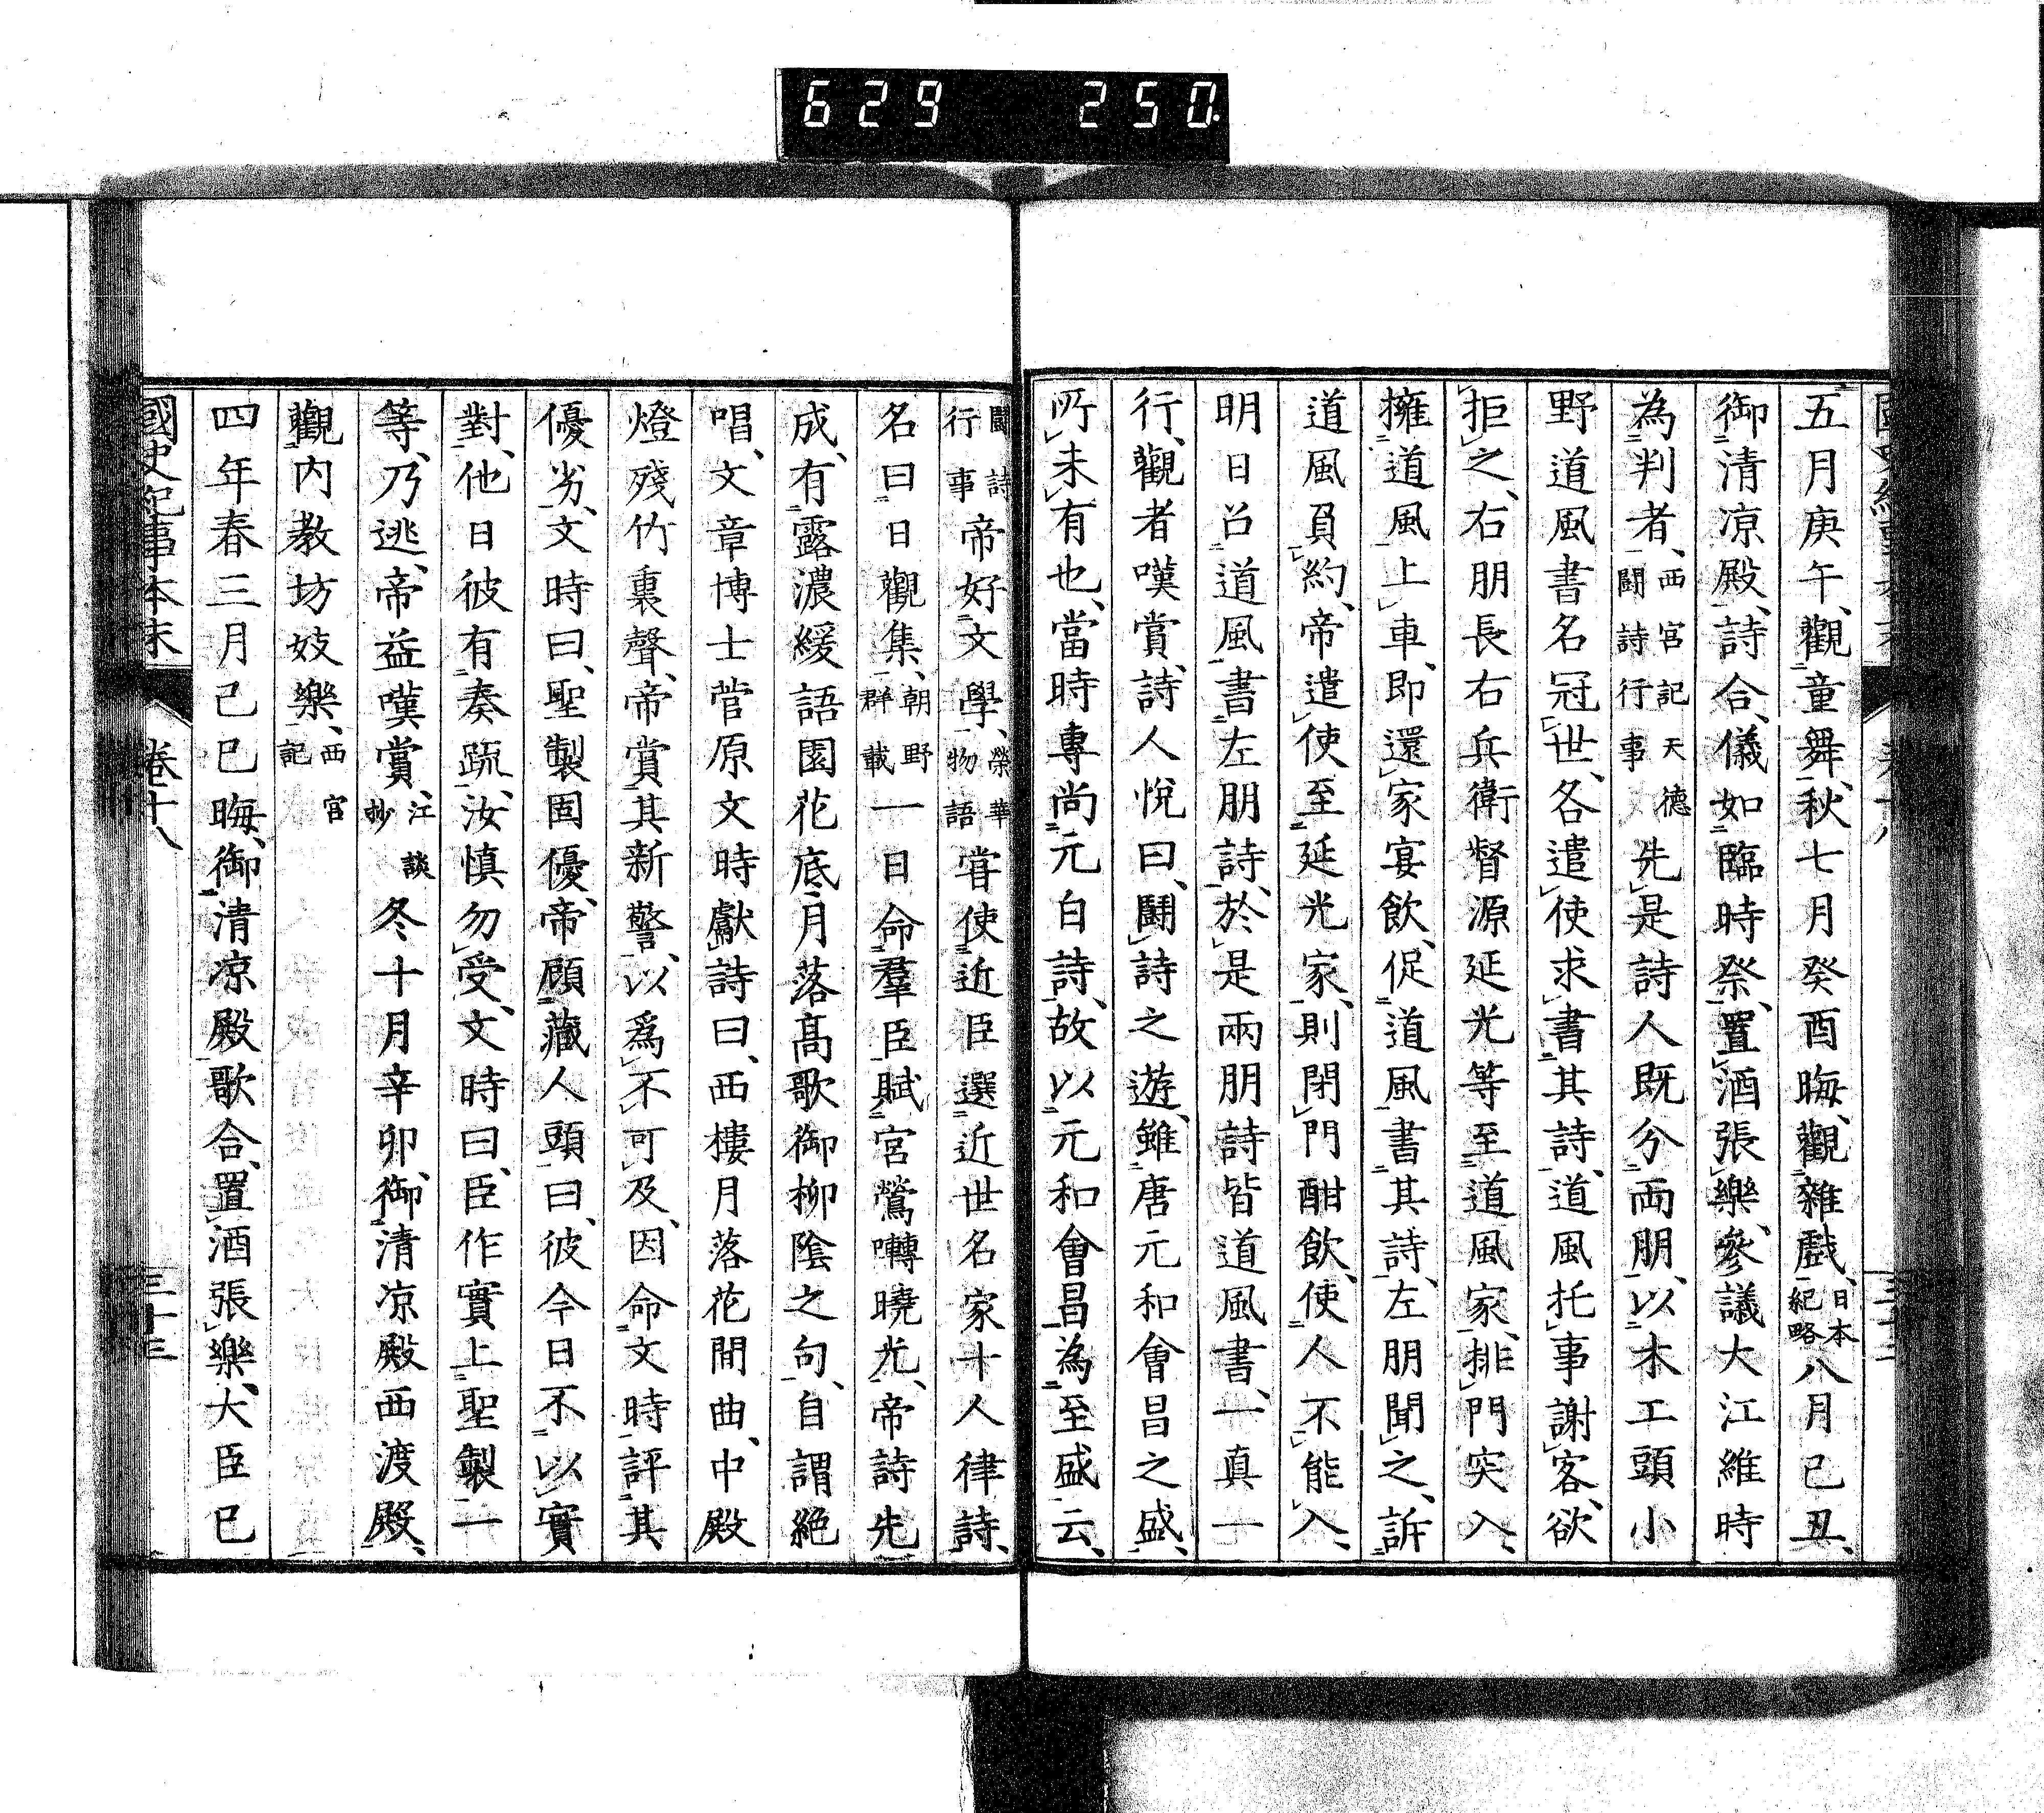 629 250.
五月庚午、觀童舞、秋七月癸酉晦、觀雜戲、日本紀略八月己丑、
御清凉殿、詩合、儀如臨時祭、置酒張樂、參議大江維時
為判者、西宮記天德鬪詩行事先是詩人既分両朋、以木工頭小
野道風書名冠世、各遣使求書其詩、道風托事謝客、欲
拒之、右朋長右兵衛督源延光等至道風家、排門突入、
擁道風上車、即還家宴飲、促道風書其詩、左朋聞之、訴
道風負約、帝遣使至延光家、則閉門酣飲、使人不能入、
明日召道風書左朋詩、於是兩朋詩皆道風書、一真一
行、觀者嘆賞、詩人悅曰、鬪詩之遊、雖唐元和會昌之盛、
所未有也、當時專尚元白詩、故以元和會昌為至盛云、
鬪詩行事帝好文學、榮華物語甞使近臣選近世名家十人律詩、
名曰日觀集、朝野群載一日命羣臣賦宮鶯囀曉光、帝詩先
成、有露濃緩語園花底月落高歌御柳陰之句、自謂絕
唱、文章博士菅原文時獻詩曰、西樓月落花間曲、中殿
燈殘竹裏聲、帝賞其新警、以爲不可及、因命文時評其
優劣、文時曰、聖製固優、帝顧藏人頭曰、彼今日不以實
對、他日彼有奏疏、汝慎勿受、文時曰、臣作實上聖製一
等、乃逃、帝益嘆賞、江談鈔冬十月辛卯、御清凉殿西渡殿、
觀內教坊妓樂、西宮記
四年春三月己巳晦、御清凉殿歌合、置酒張樂、大臣已
國史紀事本末 卷十八 三十三